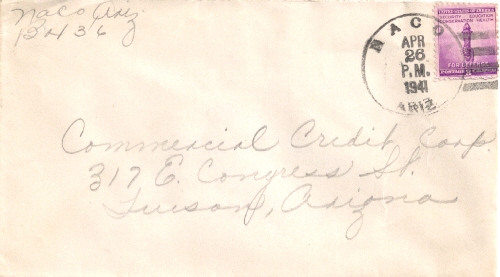 Naco Ariz
Box 36
NACO
APR
26
P.M.
1941
ARIZ.
UNITED STATES OF AMERICA
SECURITY EDUCATION
CONSERVATION HEALTH
FOR DEFENSE
POSTAGE 3¢
Commercial Credit Corp.
317 E. Congress St.
Tucson, Arizona